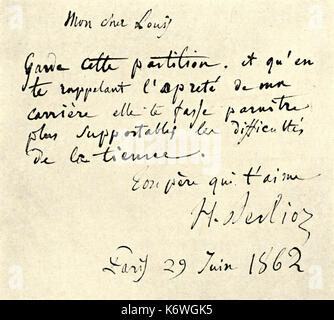 Mon cher Louis
Garde cette partition. et qu'en
te rappelant l'apreté de ma
carrière elle te fasse paraître
plus supportables les difficultés
de la tienne.
ton père qui t'aime
H. Berlioz
Paris 29 Juin 1862
alamy stock photo
K6WGK5
www.alamy.com